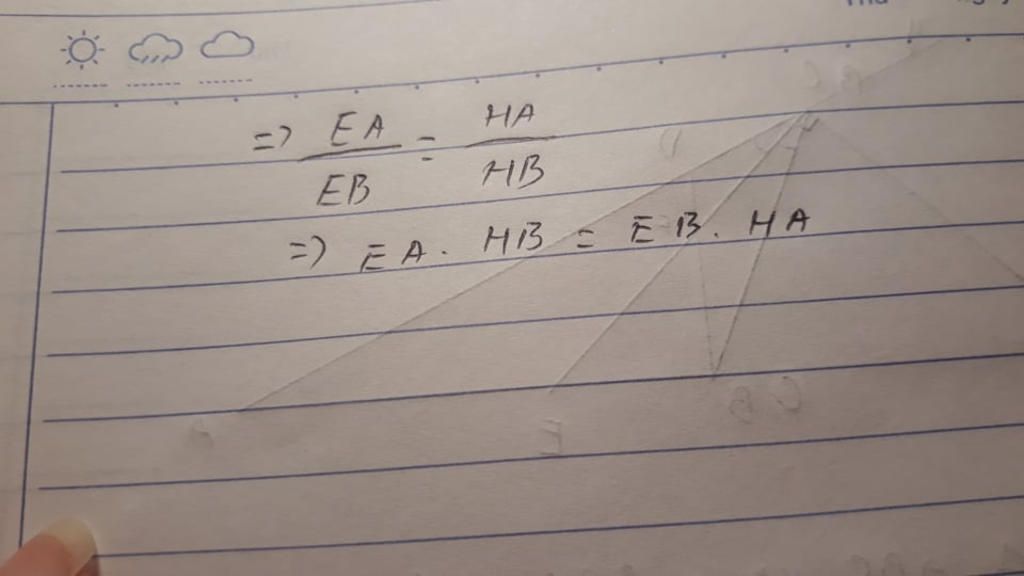 => EA/EB = HA/HB
=> EA . HB = EB . HA